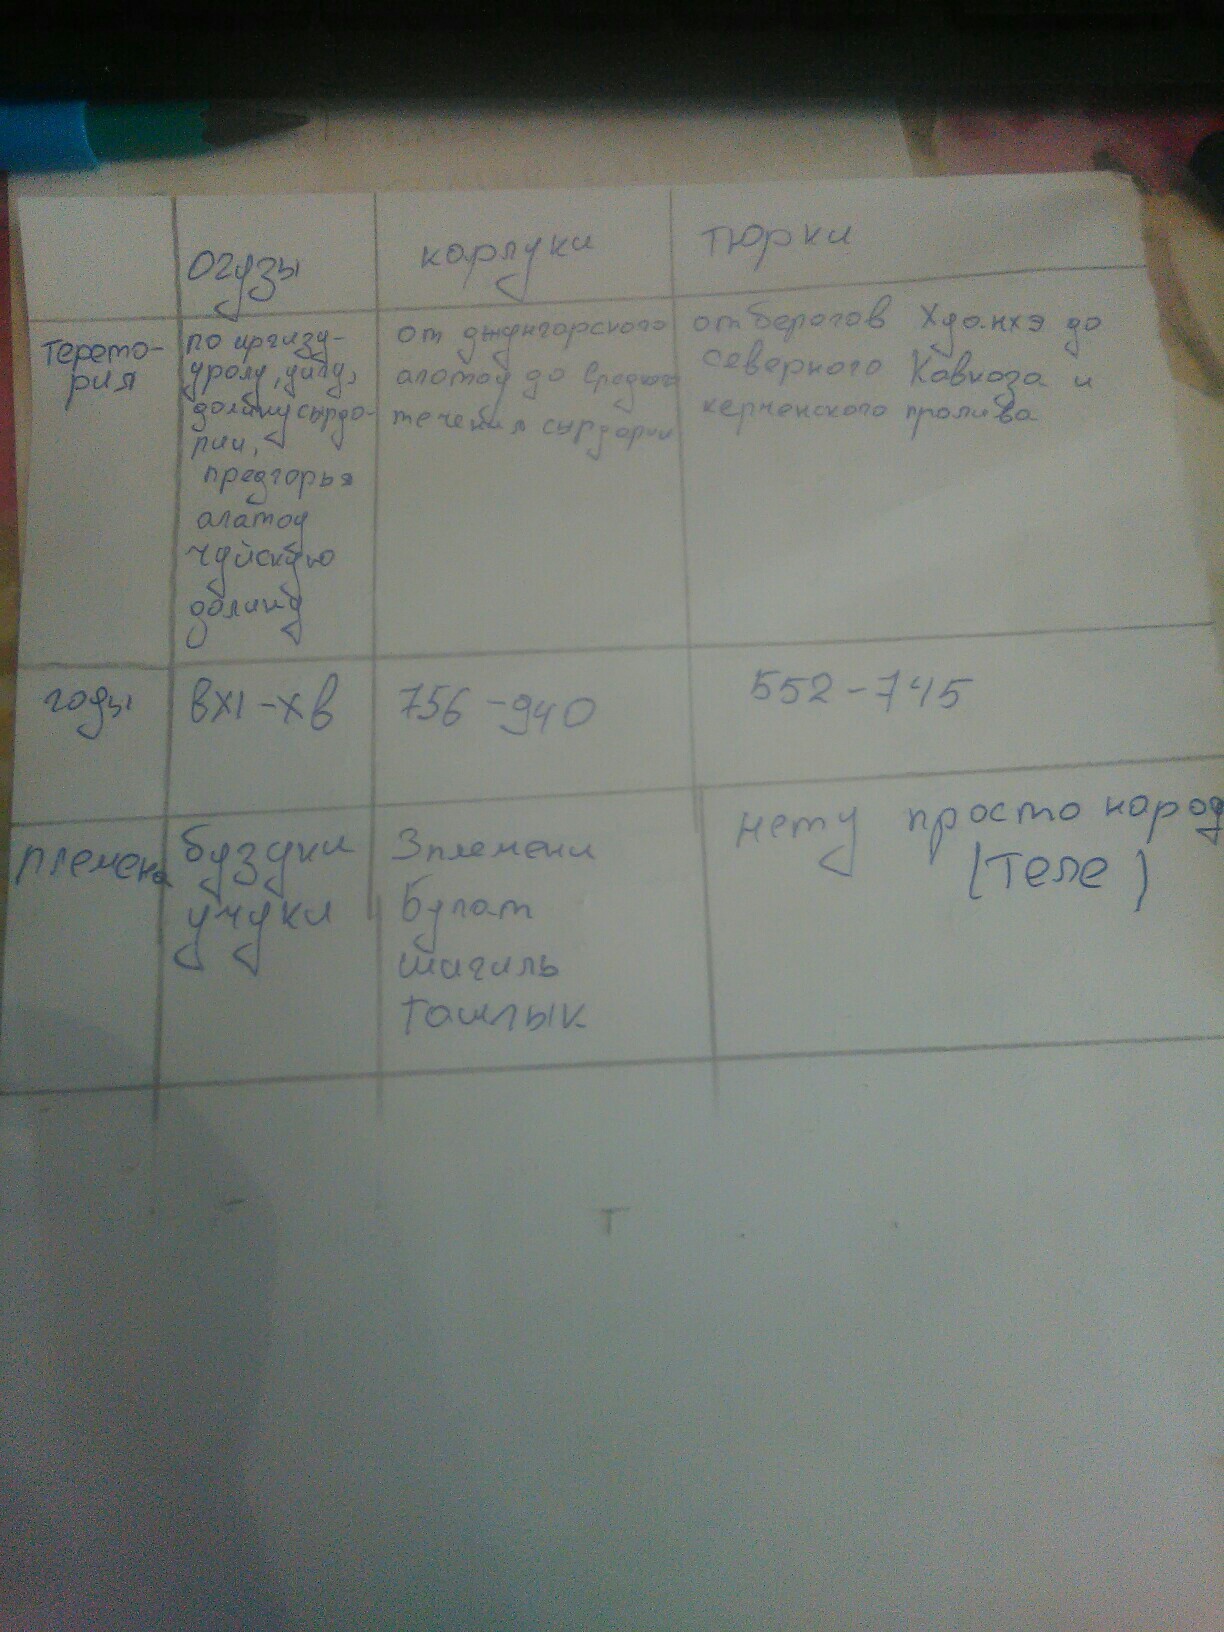 огузы
карлуки
тюрки
терето-
рия
по иргизу-
уралу, уилу,
долину сырда-
рии,
предгорья
алатау
чуйскую
долину
от джунгарского
алатау до Среднего
течения сырдарии
от берегов Хуанхэ до
северного Кавказа и
керченского пролива
годы
в XI-X в
756-940
552-745
племена
бузуки
учуки
3 племени
Булат
шигиль
Ташлык
нету просто народ
(Теле)
т